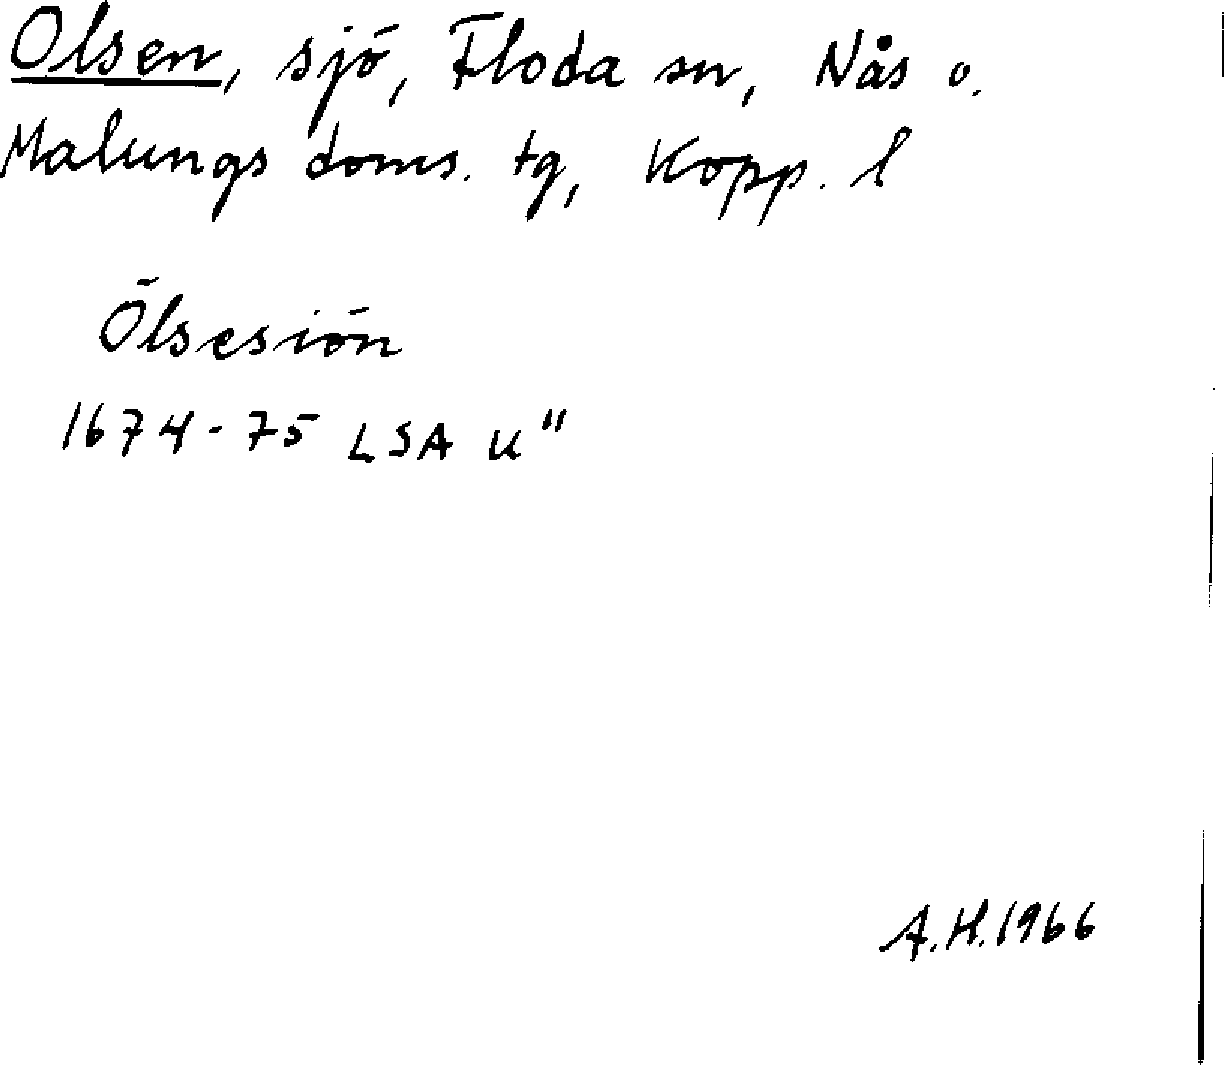 Olsen, sjö, Floda sn, Nås o.
Malungs doms. tg, Kopp. l
Ölsesiön
1674-75 LSA U"
A.H.1966